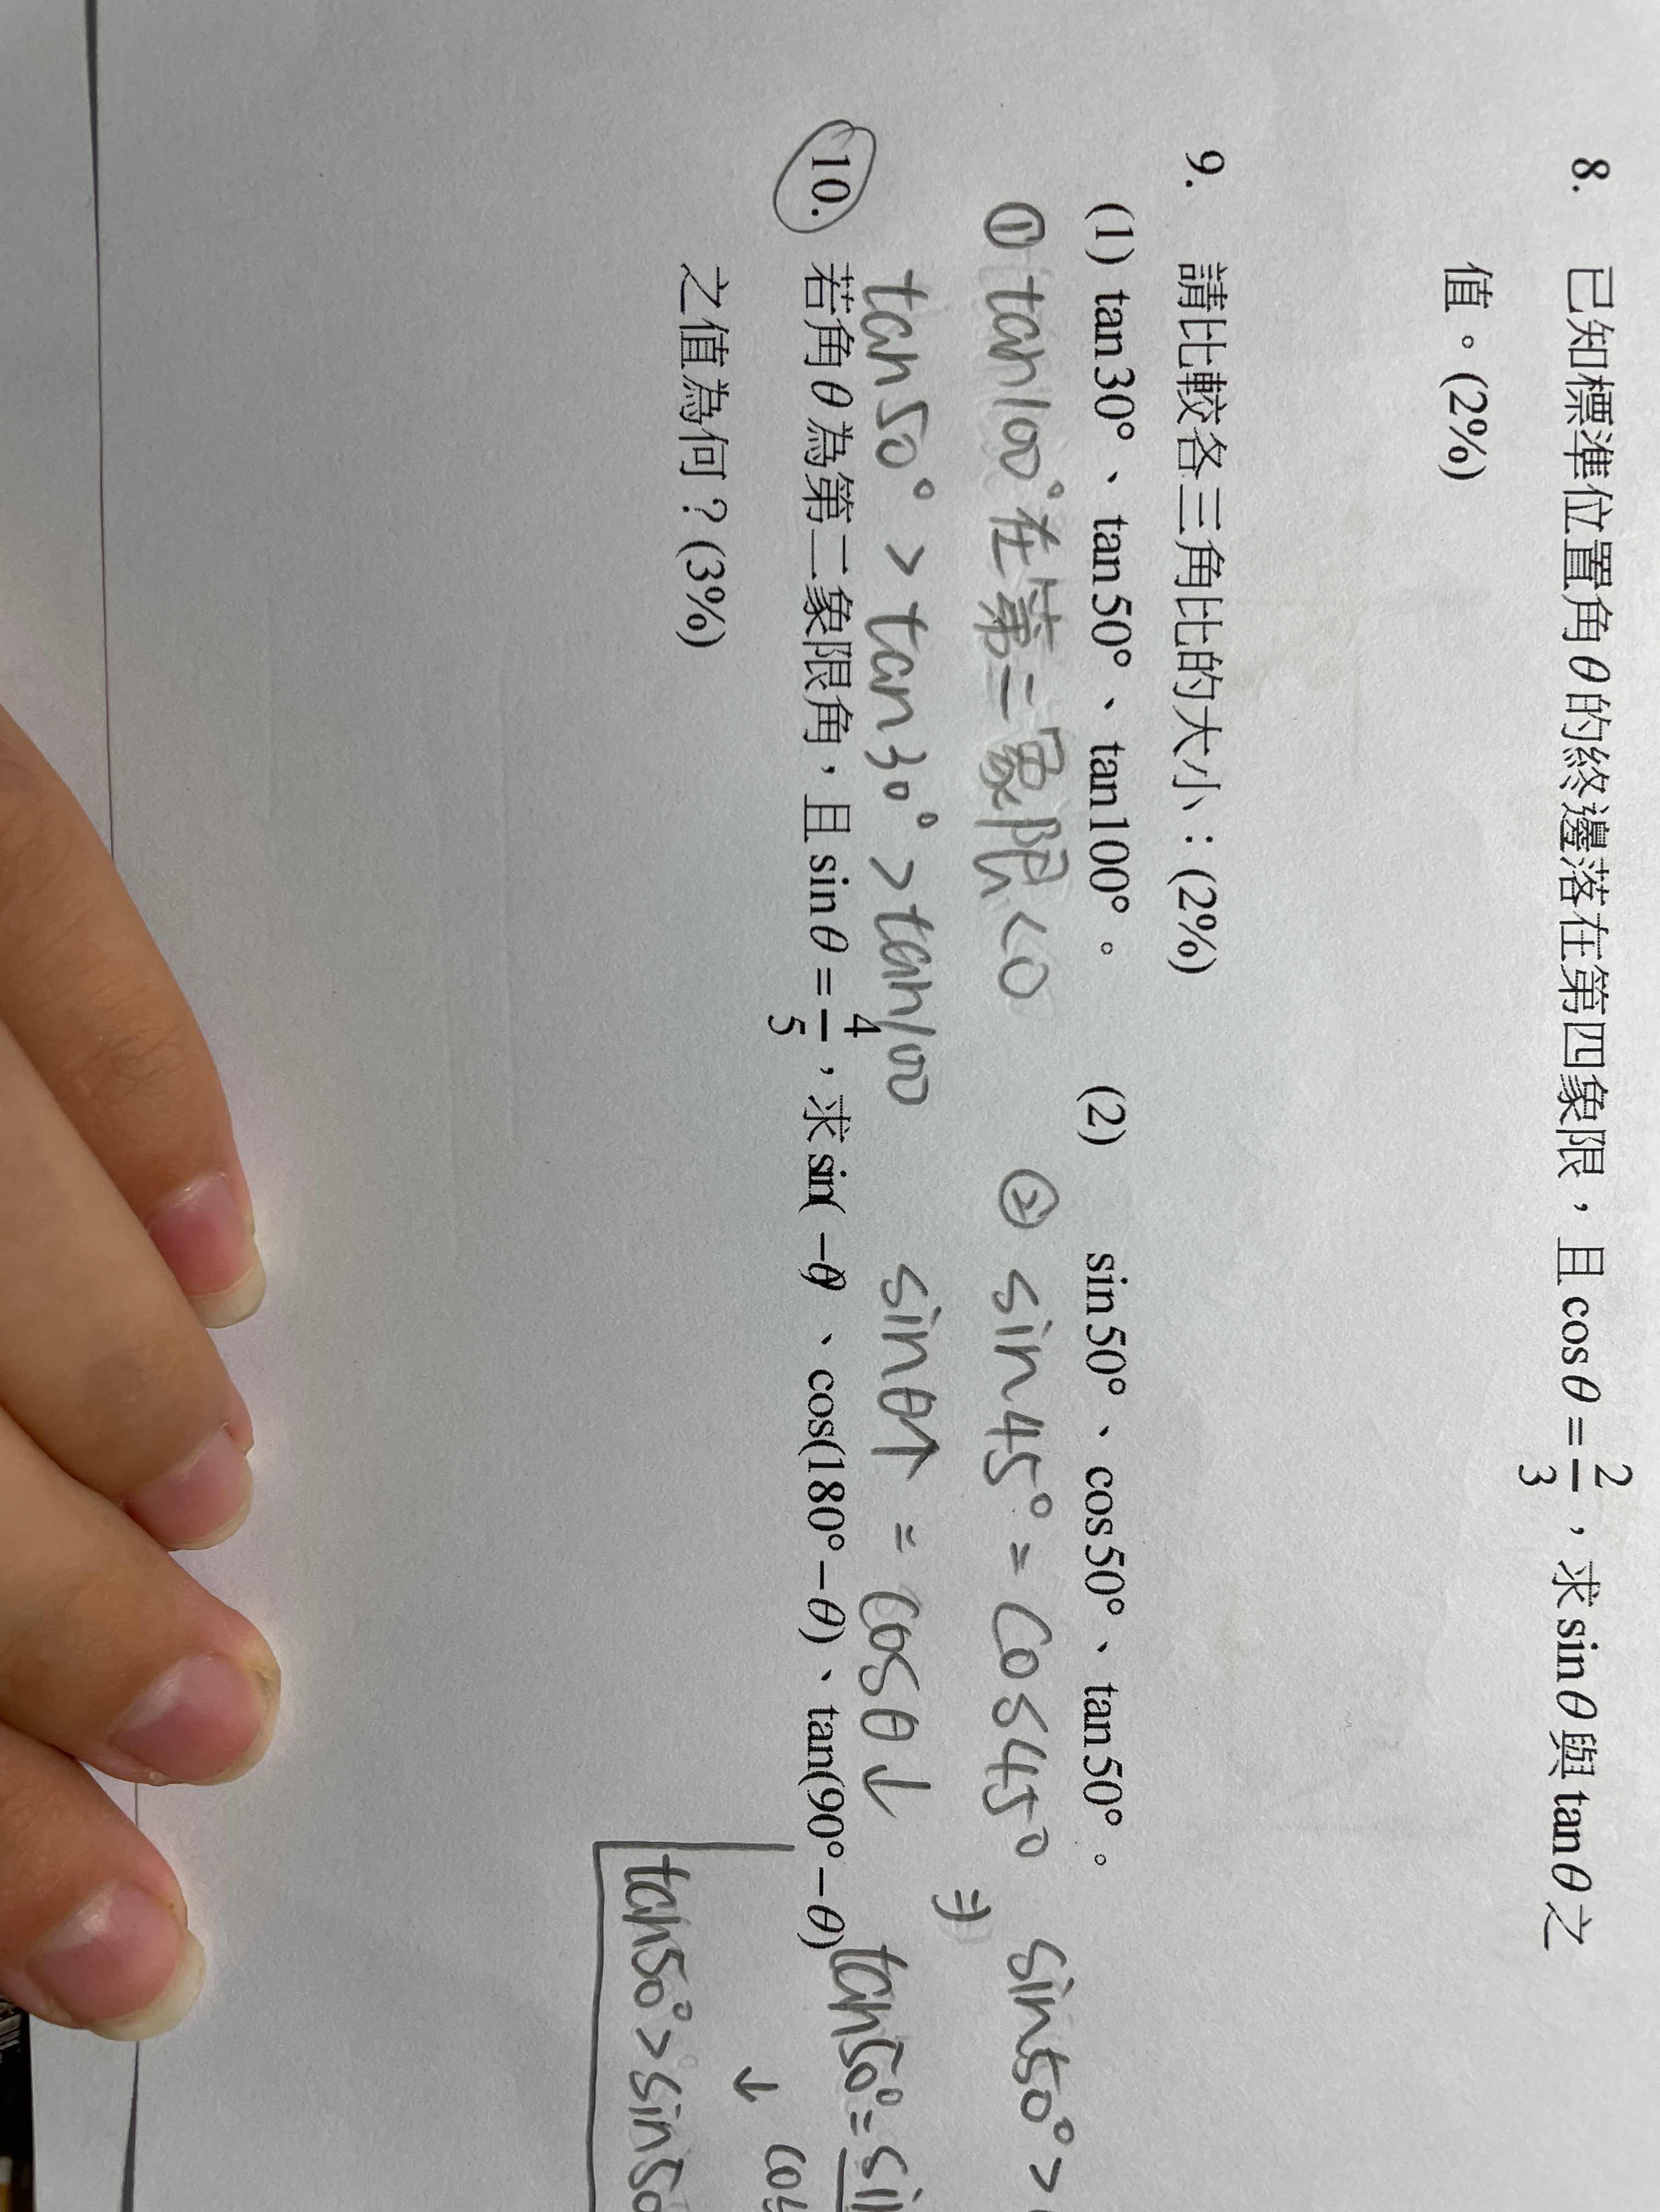 8. 已知標準位置角θ的終邊落在第四象限，且cosθ=2/3，求sinθ與tanθ之
值。(2%)
9. 請比較各三角比的大小：(2%)
(1) tan30°、tan50°、tan100°。 (2) sin50°、cos50°、tan50°。
① tan100°在第二象限<0 ② sin45°=cos45° sin50°>
⇒
tan50°>tan30°>tan100 sinθ↑ = cosθ↓ tan50°=
10. 若角θ為第二象限角，且sinθ=4/5，求sin(−θ)、cos(180°−θ)、tan(90°−θ)
之值為何？(3%)
tan50°>sin50